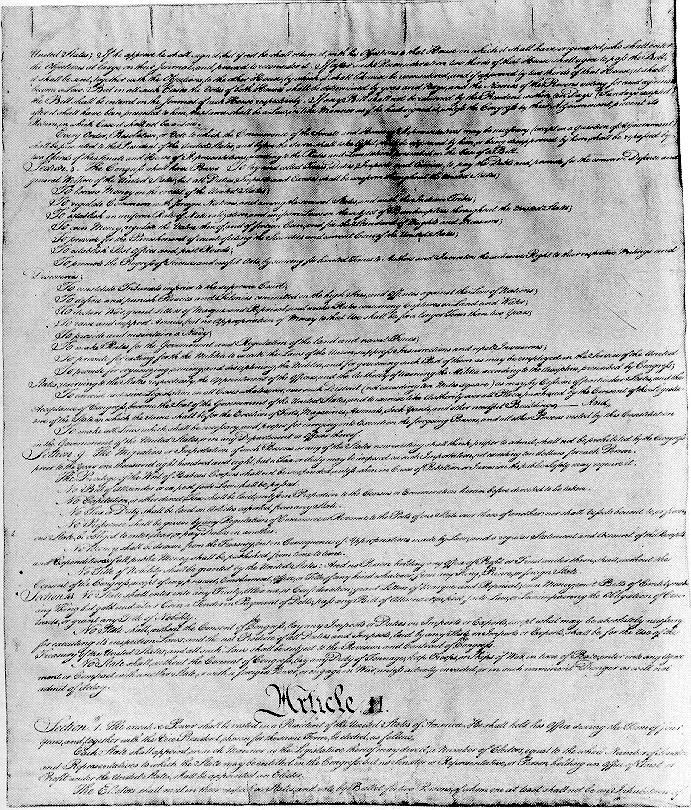 United States; If he approve he shall sign it, but if not he shall return it, with his Objections to that House in which it shall have originated, who shall enter
the Objections at large on their Journal, and proceed to reconsider it. If after such Reconsideration two thirds of that House shall agree to pass the Bill,
it shall be sent, together with the Objections, to the other House, by which it shall likewise be reconsidered, and if approved by two thirds of that House, it shall
become a Law. But in all such Cases the Votes of both Houses shall be determined by yeas and Nays, and the Names of the Persons voting for and against
the Bill shall be entered on the Journal of each House respectively. If any Bill shall not be returned by the President within ten Days (Sundays excepted)
after it shall have been presented to him, the Same shall be a Law, in like Manner as if he had signed it, unless the Congress by their Adjournment prevent its
Return, in which Case it shall not be a Law.
Every Order, Resolution, or Vote to which the Concurrence of the Senate and House of Representatives may be necessary (except on a question of Adjournment)
shall be presented to the President of the United States; and before the Same shall take Effect, shall be approved by him, or being disapproved by him, shall be repassed by
two thirds of the Senate and House of Representatives, according to the Rules and Limitations prescribed in the Case of a Bill.
Section. 8. The Congress shall have Power To lay and collect Taxes, Duties, Imposts and Excises, to pay the Debts and provide for the common Defence and
general Welfare of the United States; but all Duties, Imposts and Excises shall be uniform throughout the United States;
To borrow Money on the credit of the United States;
To regulate Commerce with foreign Nations, and among the several States, and with the Indian Tribes;
To establish an uniform Rule of Naturalization, and uniform Laws on the subject of Bankruptcies throughout the United States;
To coin Money, regulate the Value thereof, and of foreign Coin, and fix the Standard of Weights and Measures;
To provide for the Punishment of counterfeiting the Securities and current Coin of the United States;
To establish Post Offices and post Roads;
To promote the Progress of Science and useful Arts, by securing for limited Times to Authors and Inventors the exclusive Right to their respective Writings and
Discoveries;
To constitute Tribunals inferior to the supreme Court;
To define and punish Piracies and Felonies committed on the high Seas, and Offences against the Law of Nations;
To declare War, grant Letters of Marque and Reprisal, and make Rules concerning Captures on Land and Water;
To raise and support Armies, but no Appropriation of Money to that Use shall be for a longer Term than two Years;
To provide and maintain a Navy;
To make Rules for the Government and Regulation of the land and naval Forces;
To provide for calling forth the Militia to execute the Laws of the Union, suppress Insurrections and repel Invasions;
To provide for organizing, arming, and disciplining, the Militia, and for governing such Part of them as may be employed in the Service of the United
States, reserving to the States respectively, the Appointment of the Officers, and the Authority of training the Militia according to the discipline prescribed by Congress;
To exercise exclusive Legislation in all Cases whatsoever, over such District (not exceeding ten Miles square) as may, by Cession of particular States, and the
Acceptance of Congress, become the Seat of the Government of the United States, and to exercise like Authority over all Places purchased by the Consent of the Legislature
of the State in which the Same shall be, for the Erection of Forts, Magazines, Arsenals, dock-Yards, and other needful Buildings;—And
To make all Laws which shall be necessary and proper for carrying into Execution the foregoing Powers, and all other Powers vested by this Constitution
in the Government of the United States, or in any Department or Officer thereof.
Section. 9. The Migration or Importation of such Persons as any of the States now existing shall think proper to admit, shall not be prohibited by the Congress
prior to the Year one thousand eight hundred and eight, but a Tax or duty may be imposed on such Importation, not exceeding ten dollars for each Person.
The Privilege of the Writ of Habeas Corpus shall not be suspended, unless when in Cases of Rebellion or Invasion the public Safety may require it.
No Bill of Attainder or ex post facto Law shall be passed.
No Capitation, or other direct, Tax shall be laid, unless in Proportion to the Census or Enumeration herein before directed to be taken.
No Tax or Duty shall be laid on Articles exported from any State.
No Preference shall be given by any Regulation of Commerce or Revenue to the Ports of one State over those of another: nor shall Vessels bound to, or from,
one State, be obliged to enter, clear, or pay Duties in another.
No Money shall be drawn from the Treasury, but in Consequence of Appropriations made by Law; and a regular Statement and Account of the Receipts
and Expenditures of all public Money shall be published from time to time.
No Title of Nobility shall be granted by the United States: And no Person holding any Office of Profit or Trust under them, shall, without the
Consent of the Congress, accept of any present, Emolument, Office, or Title, of any kind whatever, from any King, Prince, or foreign State.
Section. 10. No State shall enter into any Treaty, Alliance, or Confederation; grant Letters of Marque and Reprisal; coin Money; emit Bills of Credit; make
any Thing but gold and silver Coin a Tender in Payment of Debts; pass any Bill of Attainder, ex post facto Law, or Law impairing the Obligation of Con-
tracts, or grant any Title of Nobility.
No State shall, without the Consent of the Congress, lay any Imposts or Duties on Imports or Exports, except what may be absolutely necessary
for executing it's inspection Laws: and the net Produce of all Duties and Imposts, laid by any State on Imports or Exports, shall be for the Use of the
Treasury of the United States; and all such Laws shall be subject to the Revision and Controul of the Congress.
No State shall, without the Consent of Congress, lay any Duty of Tonnage, keep Troops, or Ships of War in time of Peace, enter into any Agree-
ment or Compact with another State, or with a foreign Power, or engage in War, unless actually invaded, or in such imminent Danger as will not
admit of delay.
Article. II.
Section. 1. The executive Power shall be vested in a President of the United States of America. He shall hold his Office during the Term of four
Years, and, together with the Vice President, chosen for the same Term, be elected, as follows
Each State shall appoint, in such Manner as the Legislature thereof may direct, a Number of Electors, equal to the whole Number of Senators
and Representatives to which the State may be entitled in the Congress: but no Senator or Representative, or Person holding an Office of Trust or
Profit under the United States, shall be appointed an Elector.
The Electors shall meet in their respective States, and vote by Ballot for two Persons, of whom one at least shall not be an Inhabitant of